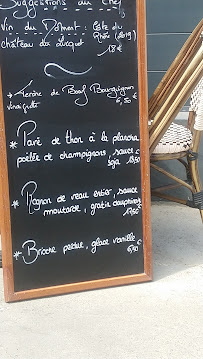 Suggestions du Chef
Vin du Moment: Côte du
château du Lucquot Rhône (2019)
18€
* Terrine de Boeuf Bourguignon
vinaigrette 6,50
* Pavé de thon à la plancha
poêlée de champignons, sauce
soja 19,50
* Rognon de veau entier, sauce
moutarde, gratin dauphinois
17,50€
* Brioche perdue, glace vanille
6,90€